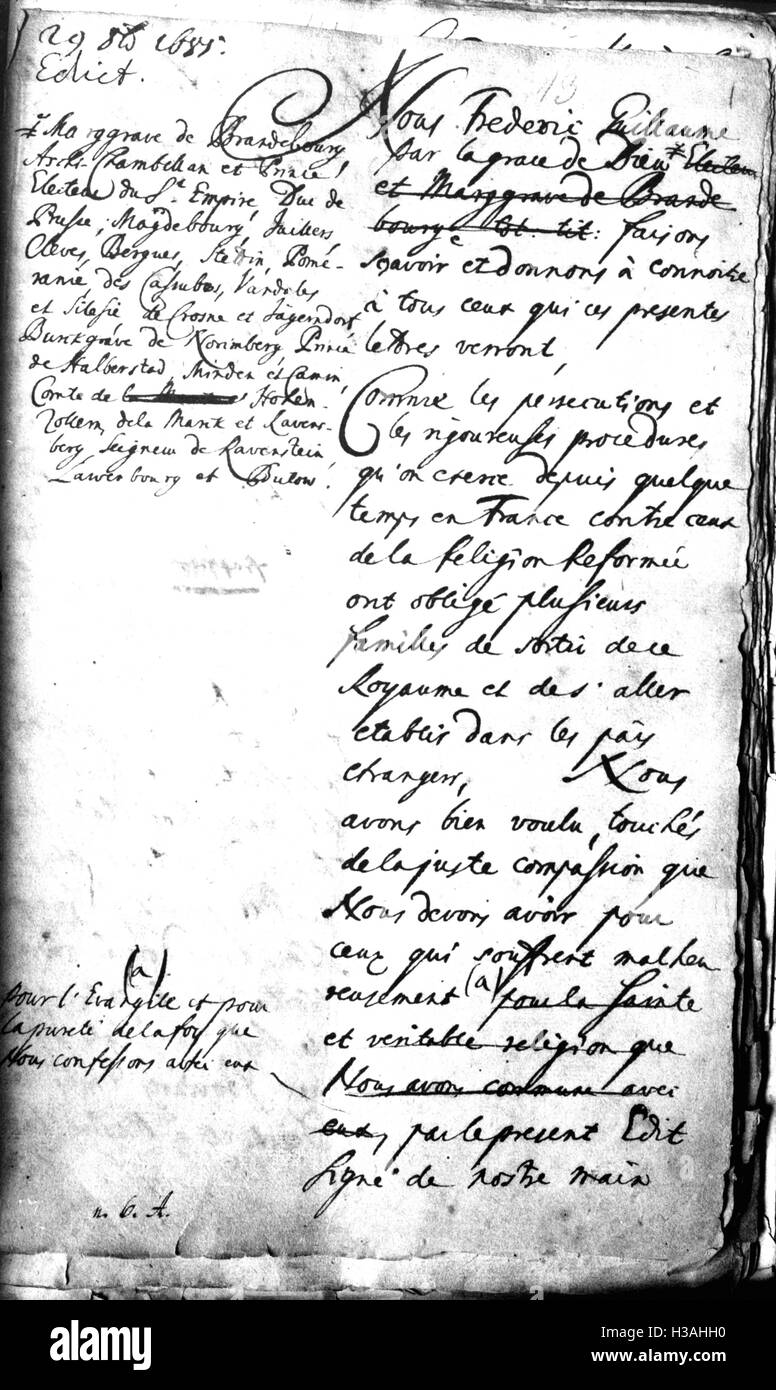 29 8bʳ 1685.
Edict.
Marggrave de Brandebourg
Archi-Chambellan et Prince
Electeur du Sᵗ Empire Duc de
Prusse, Magdebourg, Juilliers
Cleves, Bergues, Stettin, Pomé-
ranie, des Cassubes, Vandales
et Silesie de Crosne et Jägerndorf
Burckgrave de Norimberg Prince
de Halberstad, Minden et Camin,
Comte de Hohen-
zollern, de la Marck et Ravens-
berg, Seigneur de Ravenstein
Lawenbourg et Butow.
13
Nous Frederic Guillaume
par la grace de Dieu Electeur
et Marggrave de Brande
bourg &c tot. tit: faisons
sçavoir et donnons à connoitre
à tous ceux qui ces presentes
lettres verront,
Comme les persecutions et
les rigoureuses procedures
qu'on exerce depuis quelque
temps en France contre ceux
de la Religion Reformée
ont obligé plusieurs
familles de sortir de ce
Royaume et de s'aller
etablir dans les païs
etrangers, Nous
avons bien voulu, touchés
de la juste compassion que
Nous devons avoir pour
ceux qui souffrent malheu
reusement (a) pour la Sainte
et veritable religion que
Nous avons commune avec
eux, par le present Edit
signé de nostre main
(a)
pour l'Evangile et pour
la pureté de la foy que
Nous confessons avec eux
n. 6. A.
alamy stock photo
H3AHH0
www.alamy.com